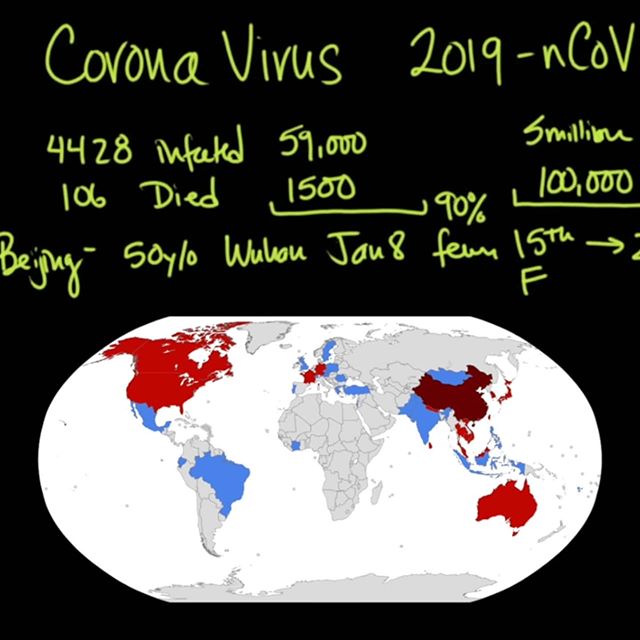 Corona Virus 2019-nCoV
4428 infected 59,000 5million
106 Died 1500 90% 100,000
Beijing- 50y/o Wuhan Jan 8 fever 15th → 2
F